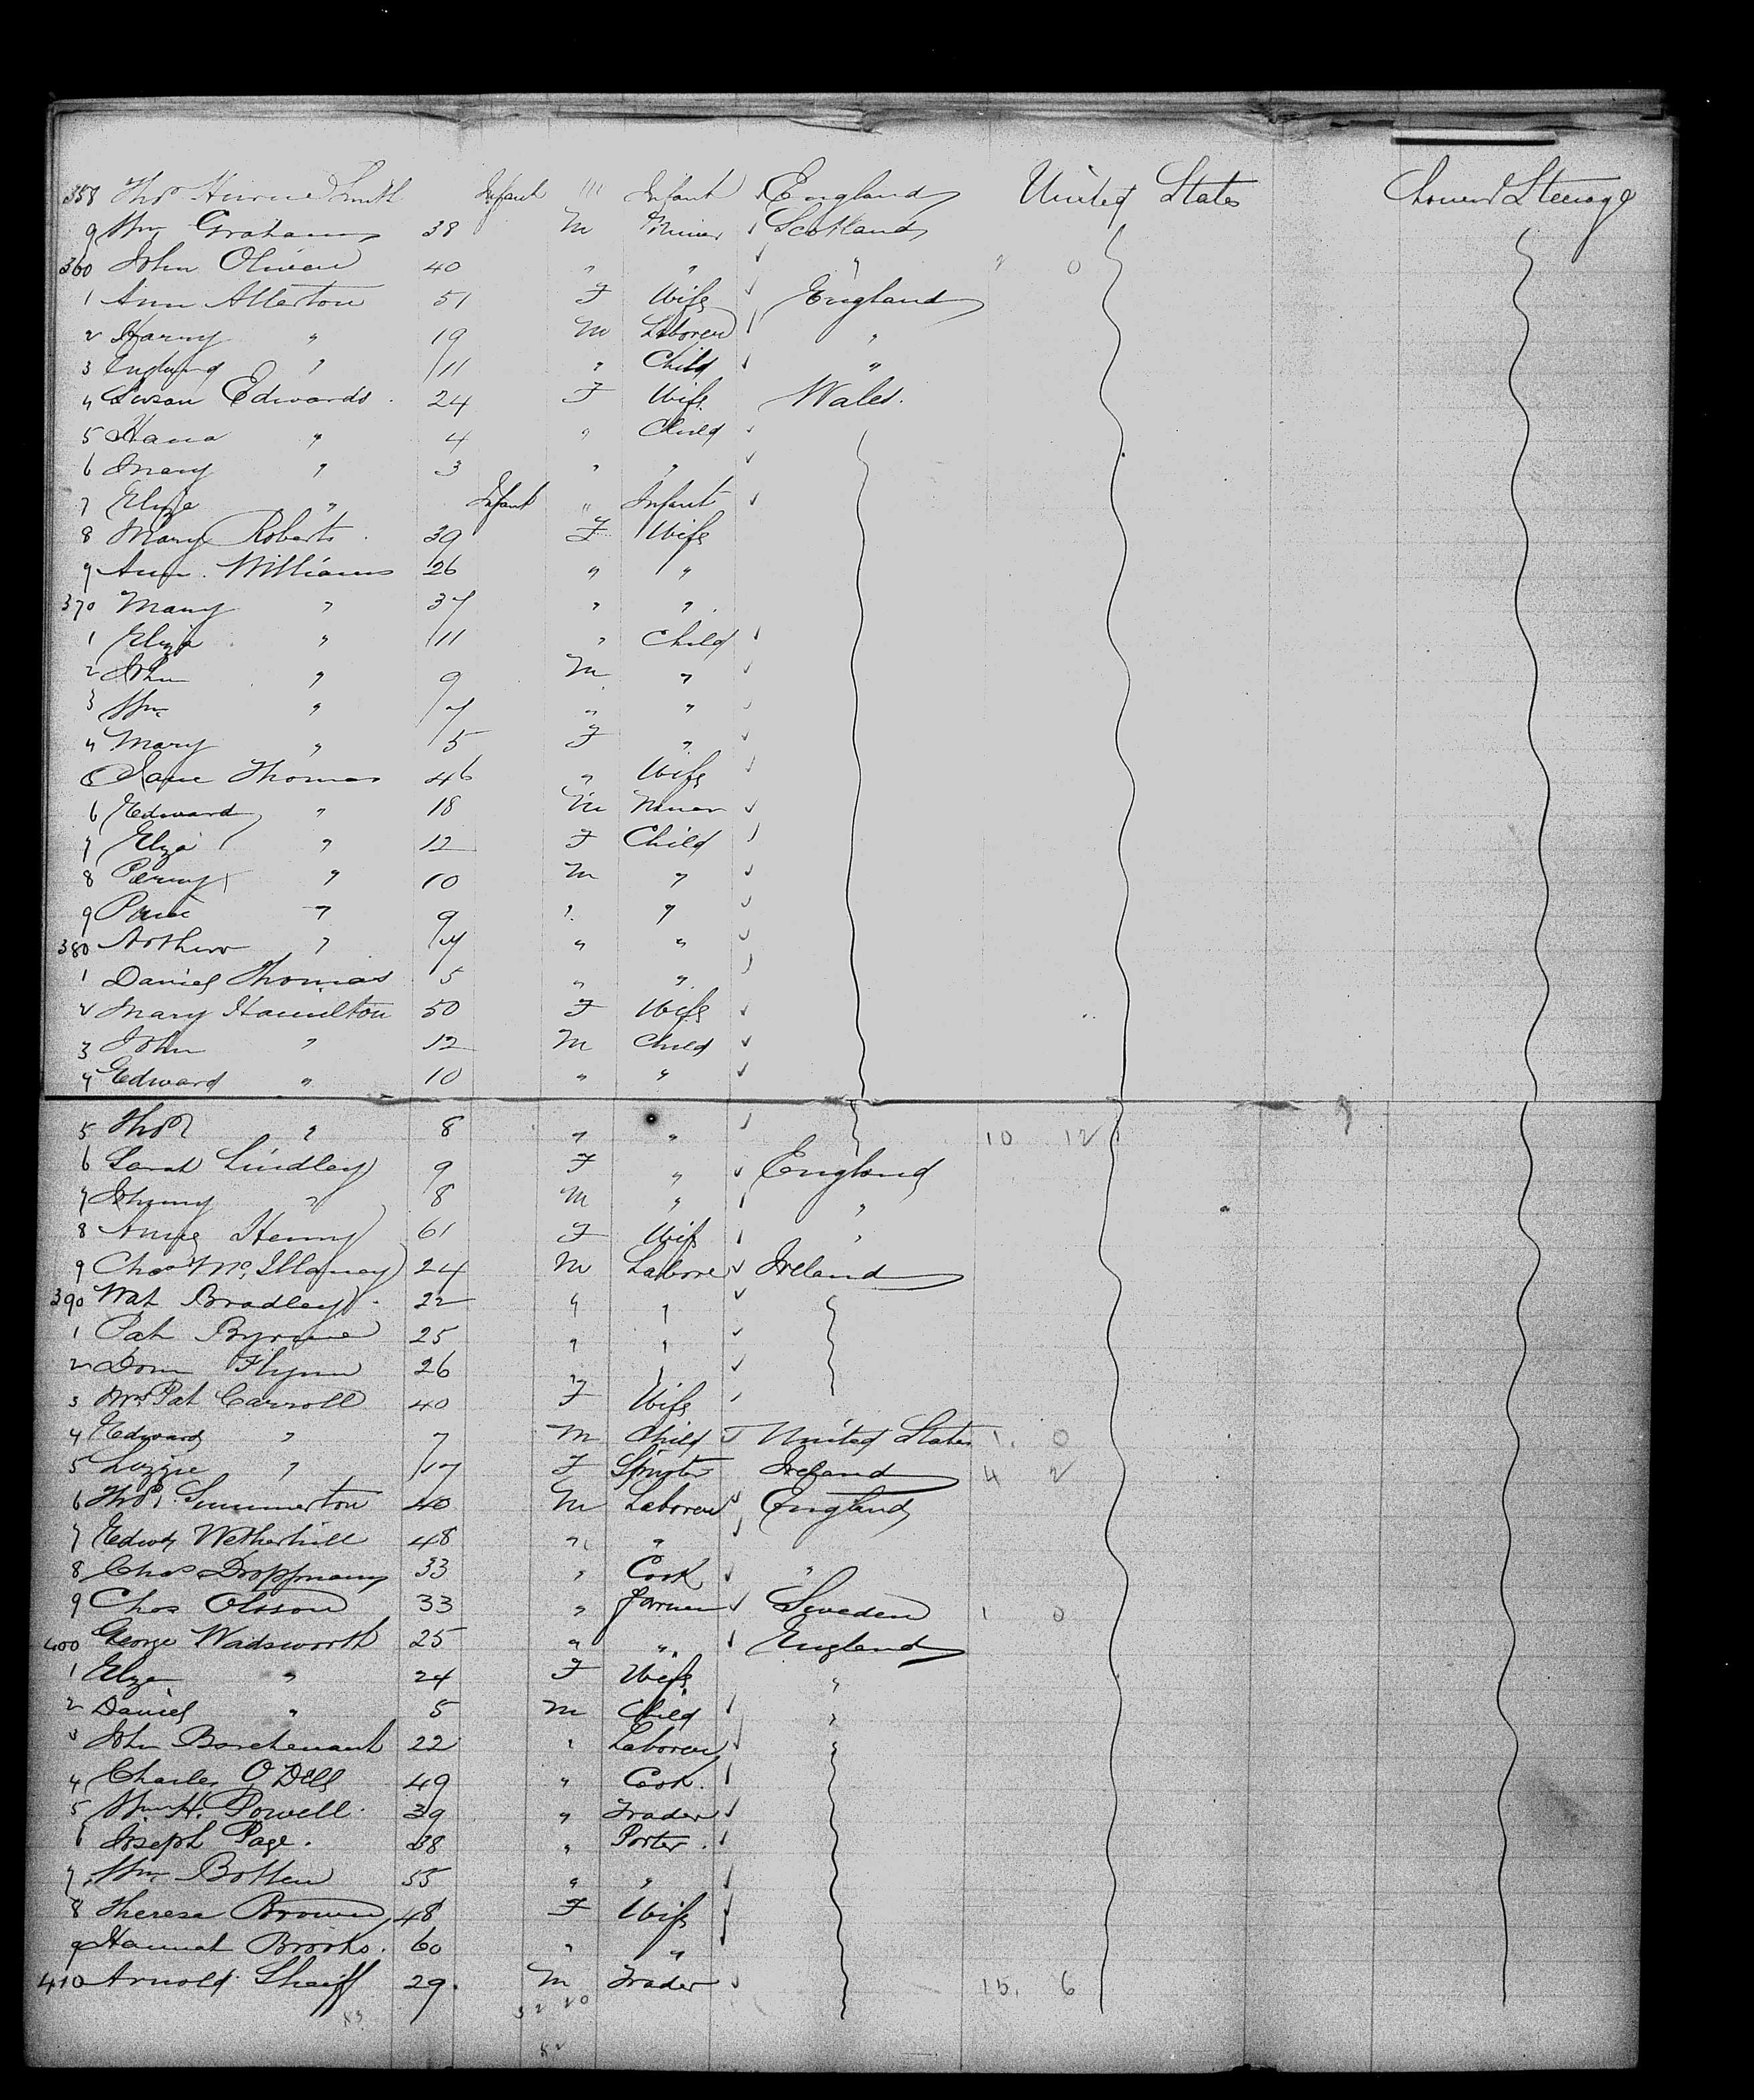 358 Thos Smith Infant m Infant England United States Lower Steerage
9 Wm Graham 38 m Miner Scotland
360 John Oliver 40 " " " 0
1 Ann Allerton 51 F Wife England
2 Harry " 19 m Laborer "
3 " 11 " Child "
4 Susan Edwards 24 F Wife Wales.
5 Hana " 4 " Child
6 Mary " 3 " "
7 Eliza " Infant " Infant
8 Mary Roberts 39 F Wife
9 Ann Williams 26 " "
370 Mary " 37 " "
1 Eliza " 11 " Child
2 John " 9 m "
3 Wm " 7 " "
4 Mary " 5 F "
5 Jane Thomas 46 " Wife
6 Edward " 18 m Miner
7 Eliza " 12 F Child
8 " 10 m "
9 " 9 " "
380 Arthur " 7 " "
1 Daniel Thomas 5 " "
2 Mary Hamilton 50 F Wife
3 John " 12 m Child
4 Edward " 10 " "
5 Thos " 8 " " 10 12
6 Sarah Lindley 9 F " England
7 Johnny " 8 m " "
8 Annie Henry 61 F Wife "
9 Chas 24 m Laborer Ireland
390 Bradley 22 " "
1 Pat Byrne 25 " "
2 Dom Flynn 26 " "
3 Mrs Pat Carroll 40 F Wife
4 Edward " 7 m Child United States 1. 0
5 Lizzie " 17 F Spinster Ireland 4 2
6 Thos. Summerton 40 m Laborer England
7 Edwd Wetherhill 48 " "
8 Chas 33 " Cook "
9 Chas Olsson 33 " Farmer Sweden 1 0
400 George Wadsworth 25 " " England
1 Eliza " 24 F Wife "
2 Daniel " 5 m Child "
3 John 22 " Laborer "
4 Charles O'Dell 49 " Cook.
5 Wm H. Powell. 39 " Trader
6 Joseph Page. 38 " Porter.
7 Wm Botten 55 " "
8 Theresa Brown 48 F Wife
9 Hannah Brooks. 60 " "
410 Arnold 29. m Trader 15. 6
32 20
52